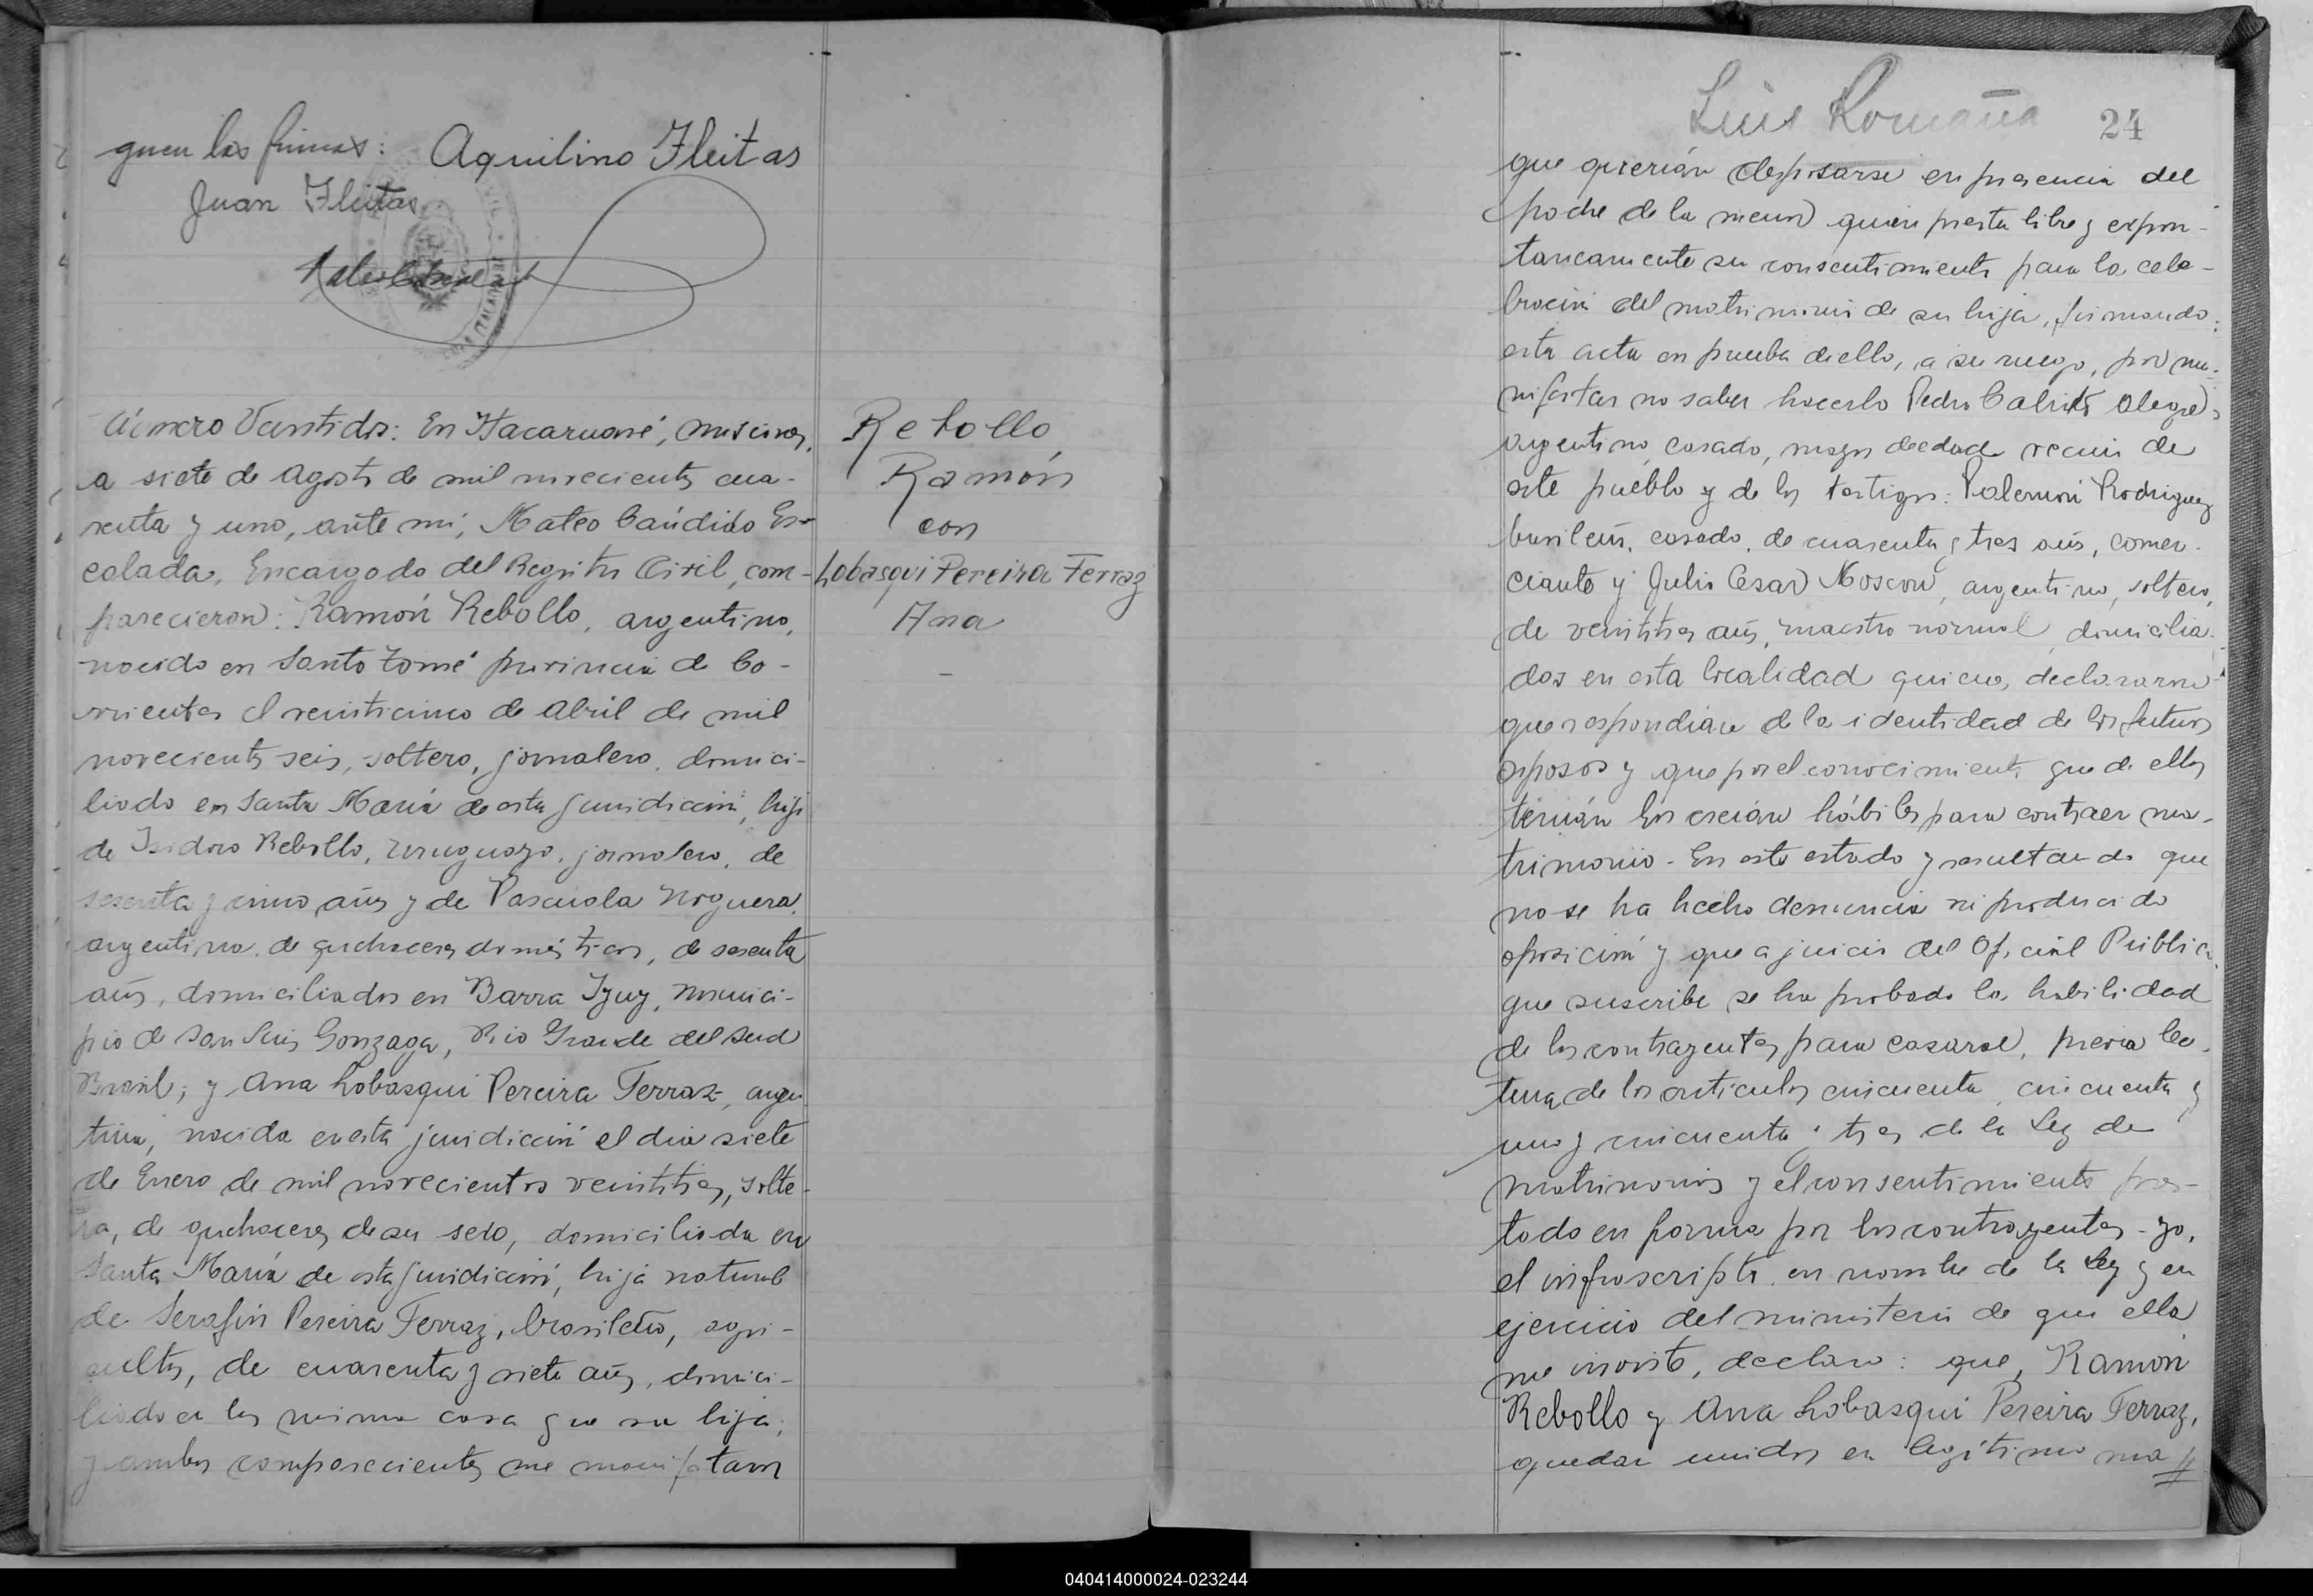 guen las firmas: Aquilino Fleitas
Juan Fleitas
Número Veintidos: En Itacaruaré, Misiones,
a siete de Agosto de mil novecientos cua-
renta y uno, ante mi, Mateo Cándido Es-
calada, Encargado del Registro Civil, com-
parecieron: Ramón Rebollo, argentino,
nacido en Santo Tomé provincia de Co-
rrientes el veinticinco de Abril de mil
novecientos seis, soltero, jornalero, domici-
liado en Santa María de esta juridicción, hijo
de Isidoro Rebollo, uruguayo, jornalero, de
sesenta y cinco años y de Pascuala Noguera,
argentina, de quehaceres domésticos, de sesenta
años, domiciliados en Barra Iyuy, Munici-
pio de San Luis Gonzaga, Rio Grande del Sud
Brasil; y Ana Lobasqui Pereira Ferraz, argen
tina, nacida en esta juridicción el dia siete
de Enero de mil novecientos veintitres, solte-
ra, de quehaceres de su sexo, domiciliada en
Santa María de esta juridicción, hija natural
de Serafin Pereira Ferraz, brasileño, agri-
cultor, de cuarenta y siete años, domici-
liado en la misma casa que su hija;
y ambos comparecientes me manifestaron
Rebollo
Ramón
con
Lobasqui Pereira Ferraz
Ana
-
Luis Romaña
24
que querián desposarse en presencia del
padre de la menor quien presta libre y expon-
taneamente su consentimiento para la cele-
bración del matrimonio de su hija, firmando
esta acta en prueba de ello, a su ruego, por ma-
nifestar no saber hacerlo Pedro Alegre,
argentino, casado, mayor de edad vecino de
este pueblo y de los testigos: Rodriguez
brasileño, casado, de cuarenta y tres años, comer-
ciante y Julio Cesar Moscon, argentino, soltero,
de veintitres años, maestro normal, domicilia-
dos en esta localidad quienes, declararon
que respondian de la identidad de los futuros
esposos y que por el conocimiento que de ellos
tenián los creián hábiles para contraer ma-
trimonio. En este estado y resultando que
no se ha hecho denuncia ni producido
oposición y que a juicio del Oficial Público
que suscribe se ha probado la habilidad
de los contrayentes para casarse, previa lec-
tura de los articulos cincuenta, cincuenta y
uno y cincuenta y tres de la Ley de
matrimonio y el consentimiento pres-
tado en forma por los contrayentes - yo,
el infrascripto en nombre de la Ley y en
ejercicio del ministerio de que ella
me inviste, declaro: que, Ramón
Rebollo y Ana Lobasqui Pereira Ferraz,
quedan unidos en legítimo ma //
040414000024-023244